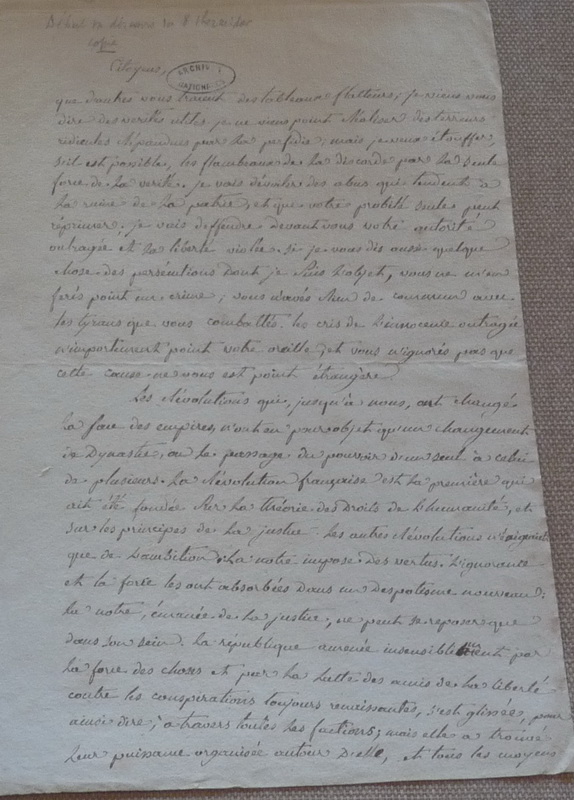 Début du discours du 8 thermidor
copie
Citoyens,
ARCHIV
NATIONALES
que d'autres vous tracent des tableaux flatteurs; je viens vous
dire des verités utiles. je ne viens point réaliser des terreurs
ridicules répandues par la perfidie; mais je veux étouffer,
s'il est possible, les flambeaux de la discorde par la seule
force de la verité. je vais dévoiler des abus qui tendent à
la ruine de la patrie, et que votre probité seule peut
réprimer. je vais deffendre devant vous votre autorité
outragée et la liberté violée. si je vous dis aussi quelque
chose des persécutions dont je suis l'objet, vous ne m'en
ferés point un crime; vous n'avés rien de commun avec
les tyrans que vous combattés. les cris de l'innocence outragée
n'importunent point votre oreille, et vous n'ignorés pas que
cette cause ne vous est point étrangère.
Les révolutions qui, jusqu'à nous, ont changé
la face des empires, n'ont eu pour objet qu'un changement
de Dynastie, ou le passage du pouvoir d'un seul à celui
de plusieurs. la révolution française est la première qui
ait été fondée sur la théorie des Droits de l'humanité, et
sur les principes de la justice. les autres révolutions n'éxigeaient
que de l'ambition: la notre impose des vertus. l'ignorance
et la force les ont absorbées dans un despotisme nouveau:
la notre, émanée de la justice, ne peut se reposer que
dans son sein. la république amenée insensiblement par
la force des choses et par la lutte des amis de la liberté
contre les conspirations toujours renaissantes, s'est glissée, pour
ainsi dire, à travers toutes les factions; mais elle a trouvé
leur puissance organisée autour d'elle, et tous les moyens